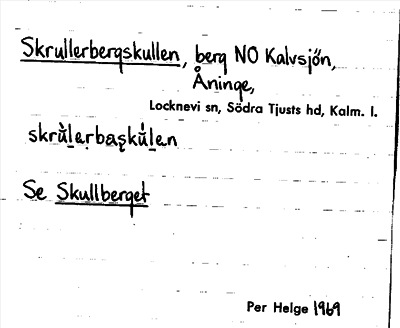 Skrullerbergskullen, berg NO Kalvsjön,
Åninge,
Locknevi sn, Södra Tjusts hd, Kalm. l.
skrù̀lẹrbaşkúlẹn
Se Skullberget
Per Helge 1969